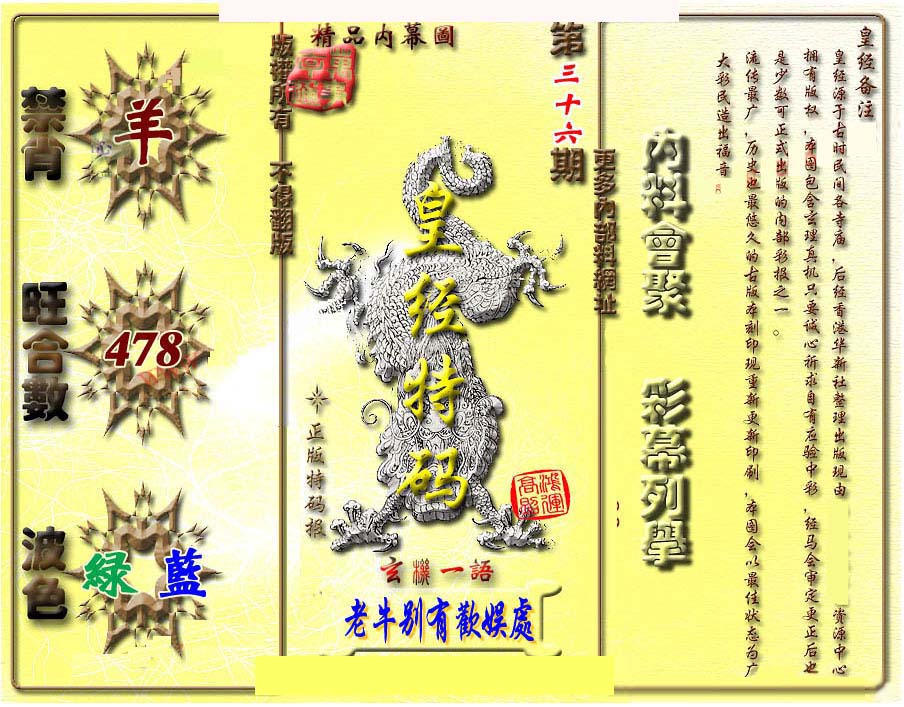 禁肖
羊
旺合數
478
波色
綠 藍
精品内幕圖
版權所有 不得翻版
第三十六期
更多內部料網址
皇经特码
正版特码报
鴻運高照
玄機一語
老牛别有歡娱處
内料會聚
彩幕列擧
皇经备注
皇经源于古时民间各寺庙,后经香港华新社整理出版现由 资源中心
拥有版权,本图包含玄理真机只要诚心祈求自有应验中彩,经马会审定更正后也
是少数可正式出版的内部彩报之一。
流传最广,历史也最悠久的古版本刻印现重新更新印刷,本图会以最佳状态为广
大彩民造出福音